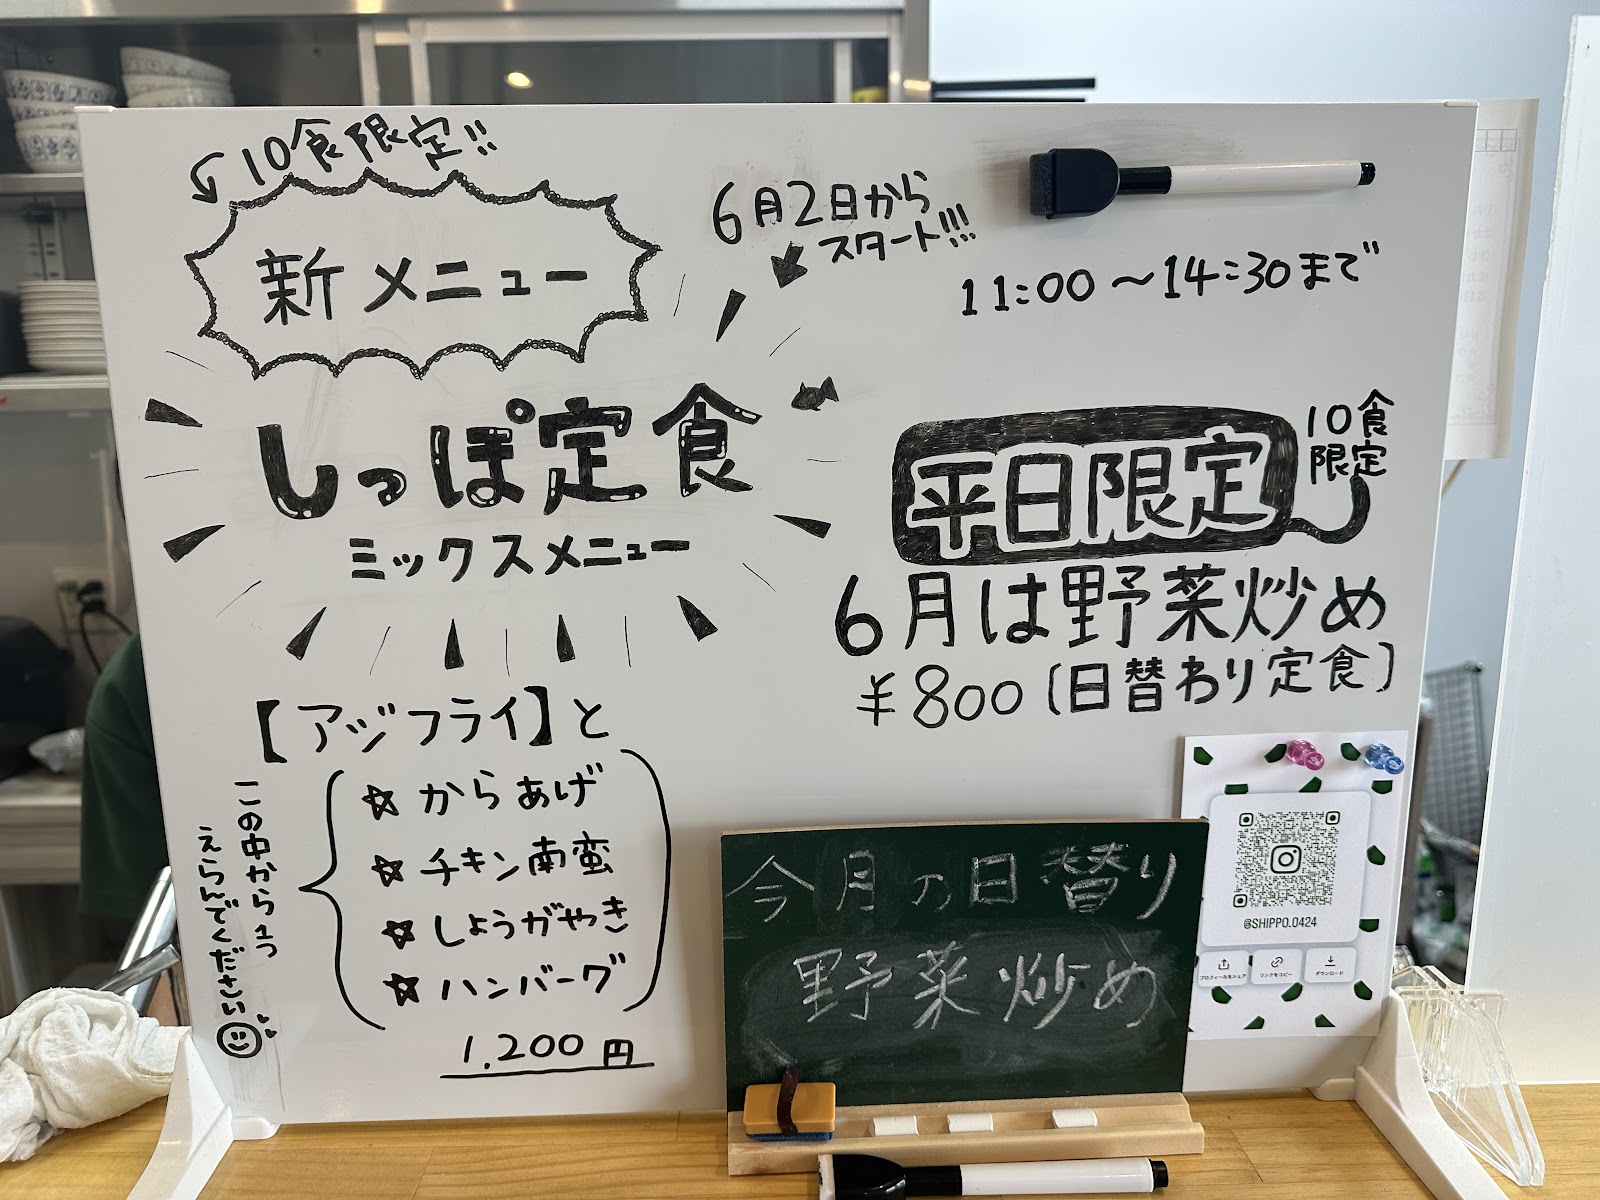 10食限定!!
新メニュー
6月2日から
スタート!!!
11:00～14:30まで
しっぽ定食
ミックスメニュー
【アジフライ】と
☆からあげ
☆チキン南蛮
☆しょうがやき
☆ハンバーグ
この中から1つ
えらんでください
1,200円
平日限定
10食
限定
6月は野菜炒め
¥800(日替わり定食)
今月の日替り
野菜炒め
@SHIPPO.0424
プロフィールをシェア
リンクをコピー
ダウンロード